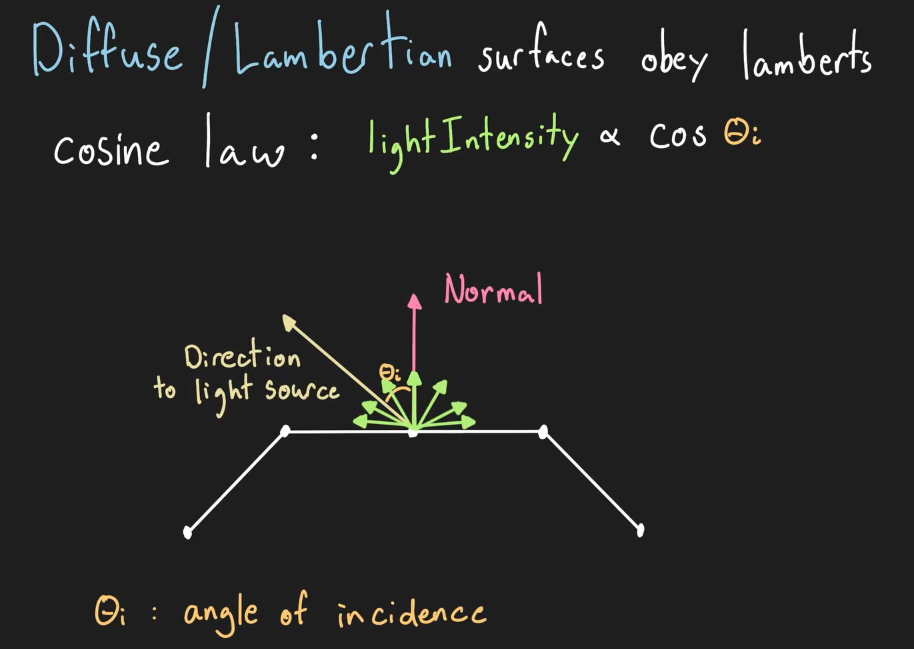 Diffuse/Lambertian surfaces obey lamberts
cosine law: lightIntensity ∝ cos θi
Normal
θi
Direction
to light source
θi : angle of incidence